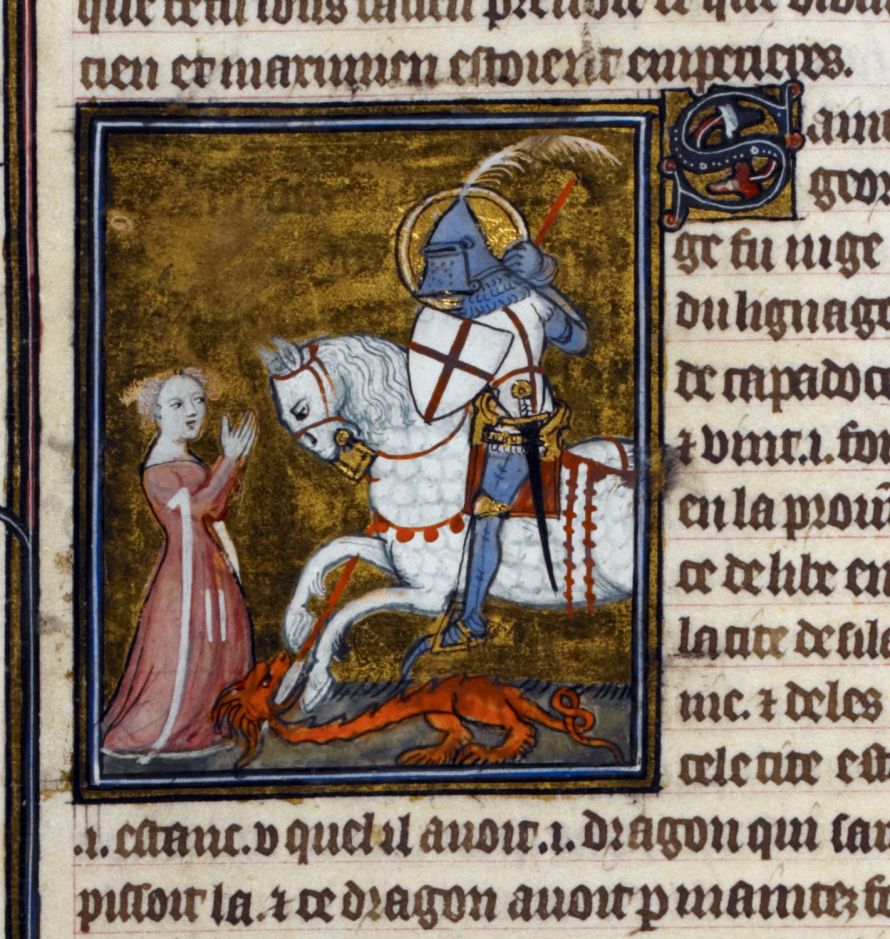 cien et maximien estoient empereres.
Saint
geor
ge fu nige
du lignage
de capadoce
⁊ vint .i. foi
en la prouī
ce de libe en
la cite de sile
nic. ⁊ deles
cele cite est
.i. estanc. v quel il auoit .i. dragon qui sau
pissoit la. ⁊ ce dragon auoit p maintez fo